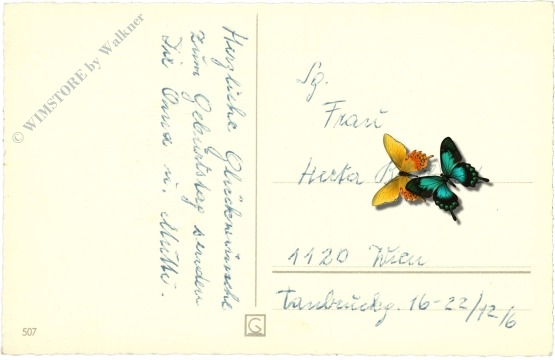 Herzliche Glückwünsche
zum Geburtstag senden
Dir Oma u. Mutti.
Sg.
Frau
Herta
1120 Wien
Tanbruckg. 16-22/12/6
© WIMSTORE by Walkner
507
G